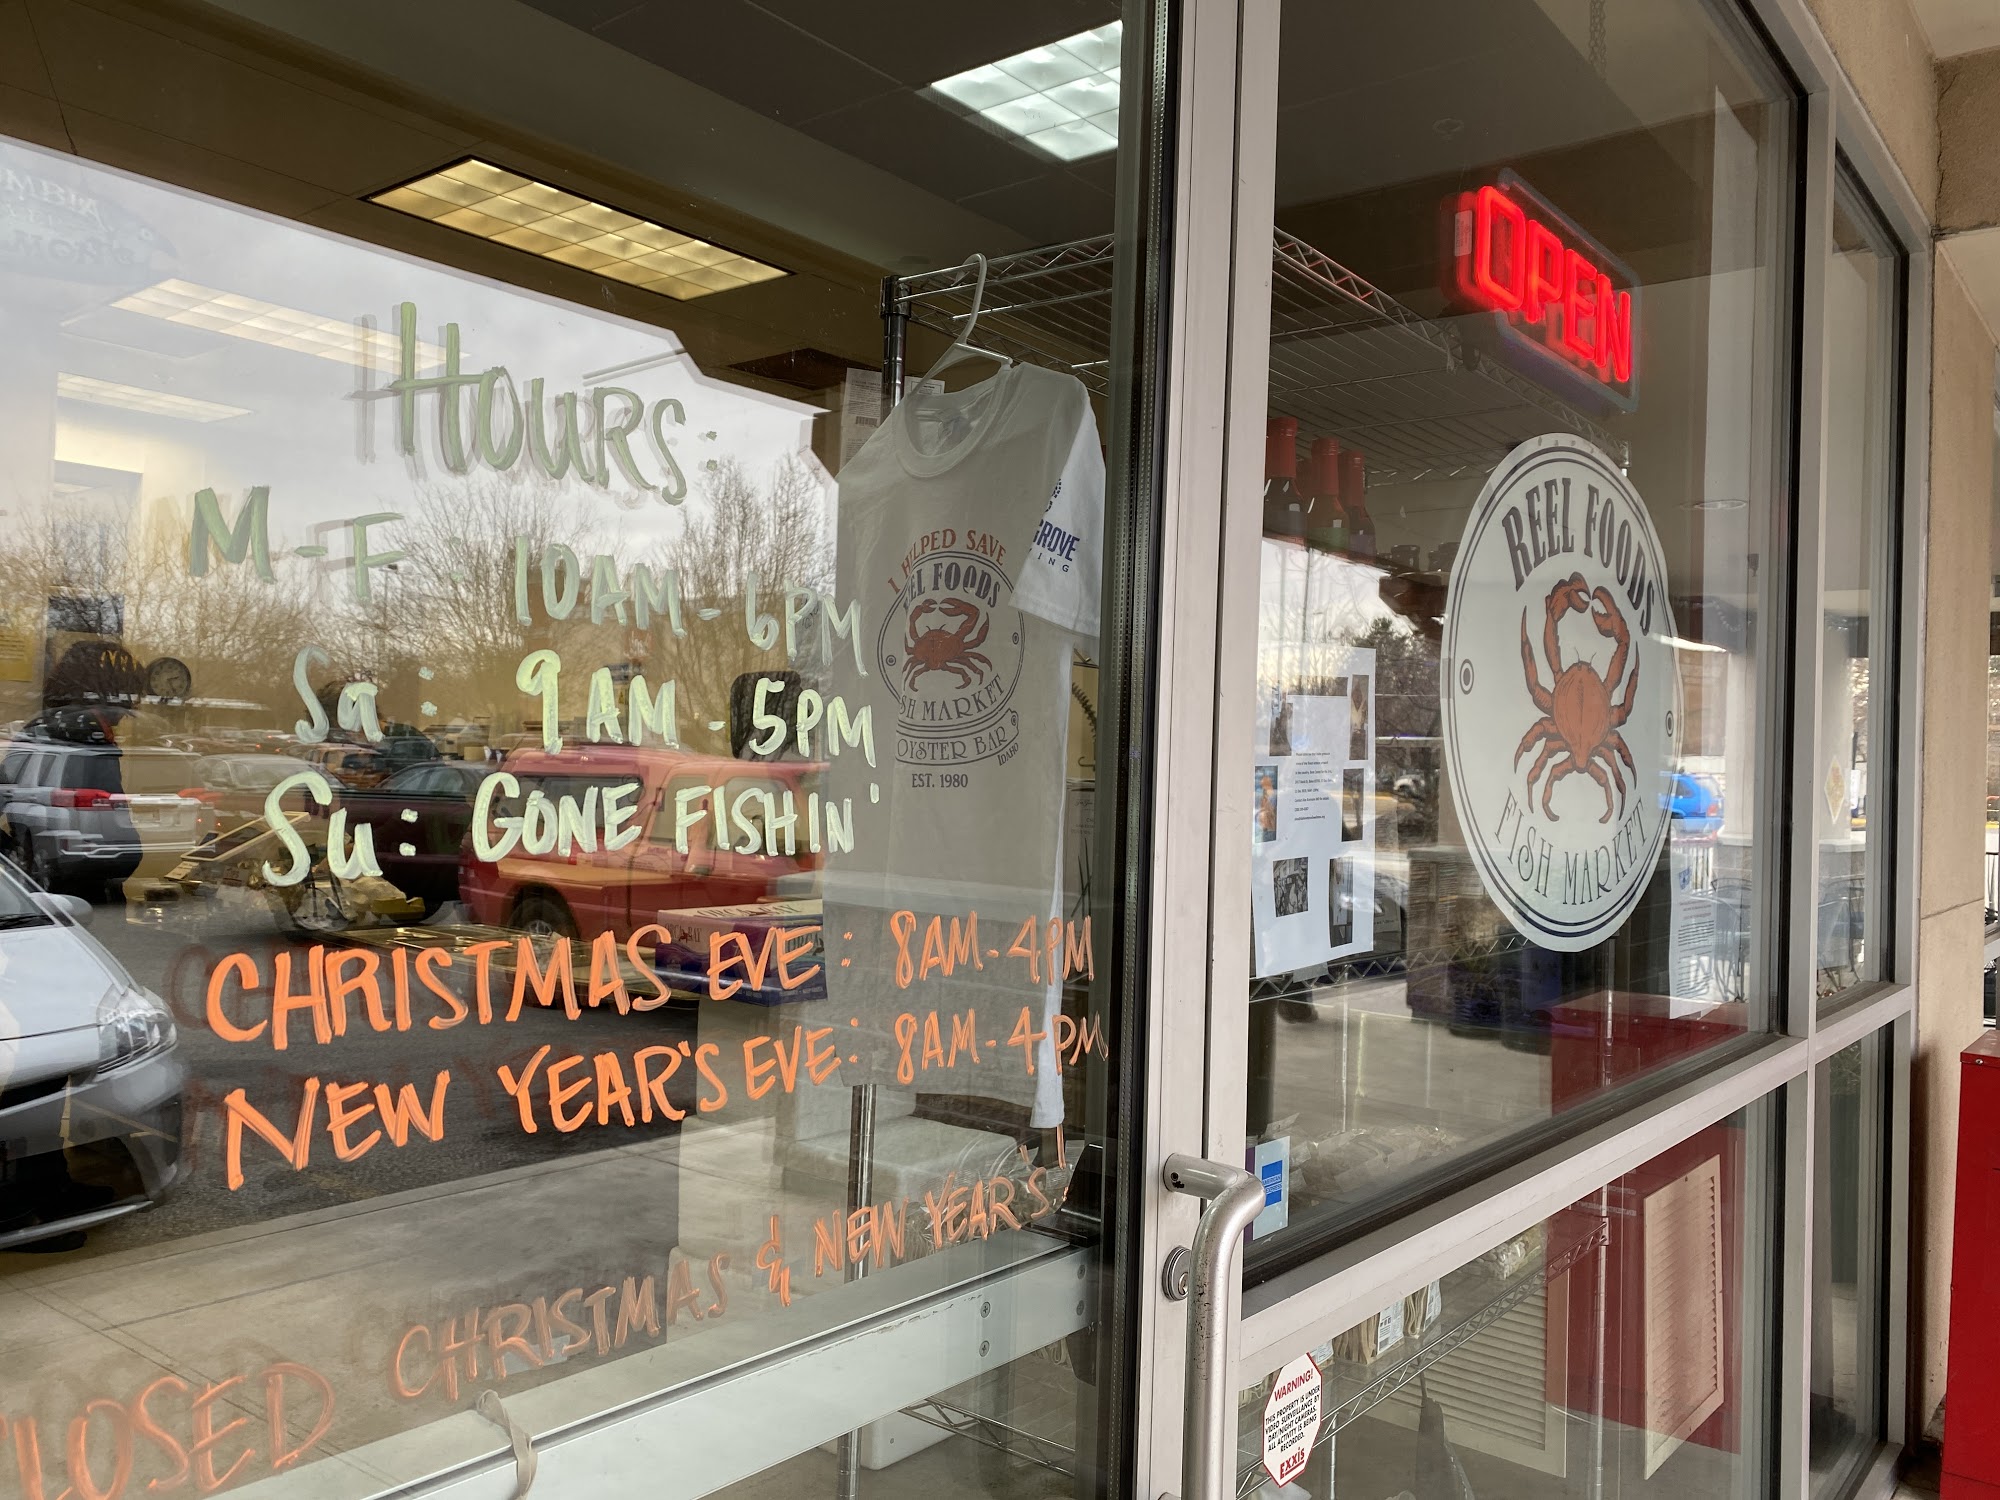 HOURS:
M-F: 10AM-6PM
Sa: 9AM-5PM
Su: GONE FISHIN'
CHRISTMAS EVE: 8AM-4PM
NEW YEAR'S EVE: 8AM-4PM
CLOSED CHRISTMAS & NEW YEAR'S!
I HELPED SAVE
REEL FOODS
FISH MARKET
OYSTER BAR
IDAHO
EST. 1980
GROVE
OPEN
REEL FOODS
FISH MARKET
AMERICAN
EXPRESS
WARNING!
THIS PROPERTY IS UNDER
VIDEO SURVEILLANCE BY
DAY/NIGHT CAMERAS.
ALL ACTIVITY IS BEING
RECORDED.
EXXIS